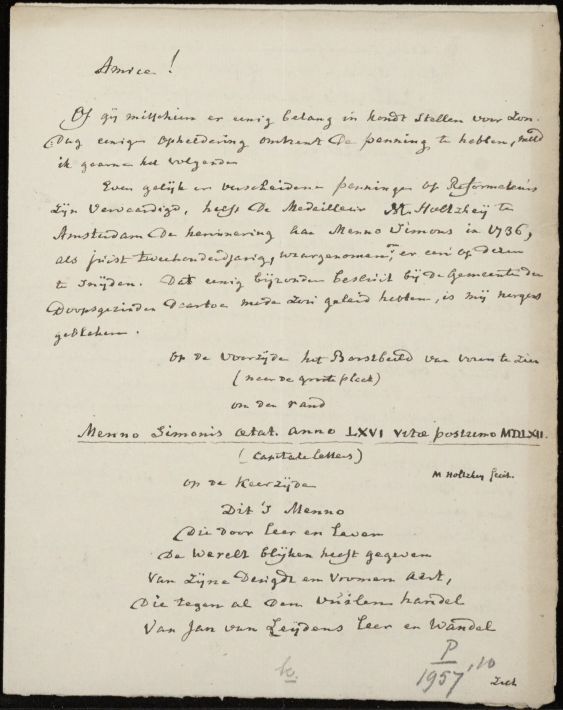 Amice!
Of gij misschien er eenig belang in hondt stellen voor Zon-
dag eenige opheldering omtrent de penning te hebben, meld
ik gaarne het volgende
Even gelijk er verscheidene penningen op Reformateurs
zijn vervaardigd, heeft de Medailleur M. Holtzheij te
Amsterdam de herinnering aan Menno Simons in 1736,
als juist tweehonderdjarig, waargenomen om er een op dezen
te snijden. Dat eenig bijzonder besluit bij de Gemeente der
Doopsgezinden daartoe mede zou geleid hebben, is mij nergens
gebleken.
op de voorzijde het Borstbeeld van voren te zien
(naar de groote plaat)
om den rand
Menno Simonis ætat. anno LXVI vitæ postumo MDLXII.
(capitale letters)
M Holtzheij fecit.
op de Keerzijde
Dit 's Menno
Die door leer en leven
De Werelt blijken heeft gegeven
Van zijne Deugdt en vromen aart,
Die tegen al den vuijlen handel
Van Jan van Leijdens leer en Wandel
P
1957,10